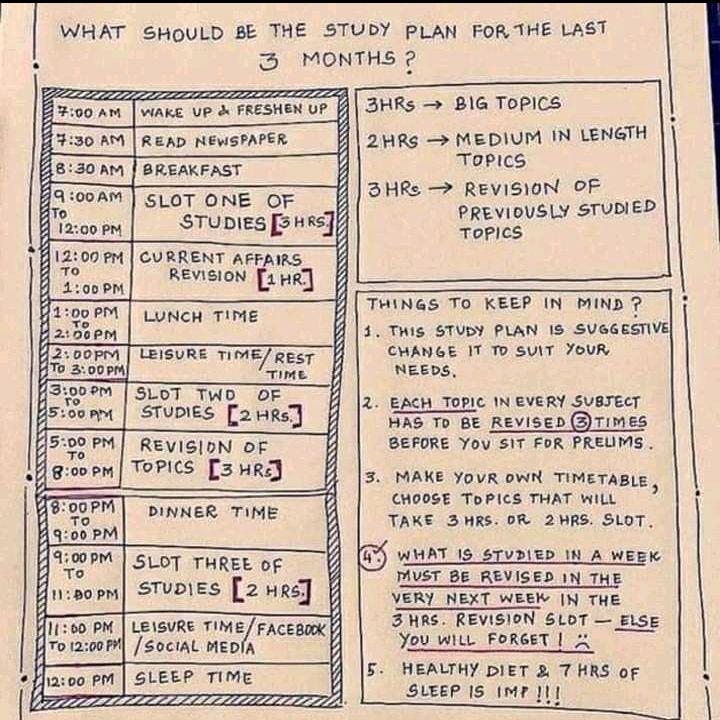 WHAT SHOULD BE THE STUDY PLAN FOR THE LAST
3 MONTHS?
7:00 AM WAKE UP & FRESHEN UP
7:30 AM READ NEWSPAPER
8:30 AM BREAKFAST
9:00 AM
TO
12:00 PM
SLOT ONE OF
STUDIES [3 HRS.]
12:00 PM
TO
1:00 PM
CURRENT AFFAIRS
REVISION [1 HR.]
1:00 PM
TO
2:00 PM
LUNCH TIME
2:00 PM
TO 3:00 PM
LEISURE TIME/REST
TIME
3:00 PM
TO
5:00 PM
SLOT TWO OF
STUDIES [2 HRS.]
5:00 PM
TO
8:00 PM
REVISION OF
TOPICS [3 HRS]
8:00 PM
TO
9:00 PM
DINNER TIME
9:00 PM
TO
11:00 PM
SLOT THREE OF
STUDIES [2 HRS.]
11:00 PM
TO 12:00 PM
LEISURE TIME/FACEBOOK
/SOCIAL MEDIA
12:00 PM SLEEP TIME
3HRS → BIG TOPICS
2HRS → MEDIUM IN LENGTH
TOPICS
3HRS → REVISION OF
PREVIOUSLY STUDIED
TOPICS
THINGS TO KEEP IN MIND?
1. THIS STUDY PLAN IS SUGGESTIVE
CHANGE IT TO SUIT YOUR
NEEDS.
2. EACH TOPIC IN EVERY SUBJECT
HAS TO BE REVISED 3 TIMES
BEFORE YOU SIT FOR PRELIMS.
3. MAKE YOUR OWN TIMETABLE,
CHOOSE TOPICS THAT WILL
TAKE 3 HRS. OR 2 HRS. SLOT.
4. WHAT IS STUDIED IN A WEEK
MUST BE REVISED IN THE
VERY NEXT WEEK IN THE
3 HRS. REVISION SLOT – ELSE
YOU WILL FORGET! ☹
5. HEALTHY DIET & 7 HRS OF
SLEEP IS IMP!!!